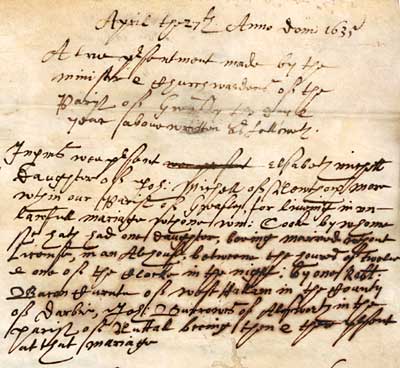 April the 27th Anno domi 1635
A true psentment made by the
minister & Churchwardens of the
Parish of Greasly for the
year above written as followeth.
Inprms wee psent Elsabeth Michell
Daughter of Joh: Michell of Newthorp More
wthin our Parish of Greasley for liveing in un-
lawful marriage wth one Wm: Cooke by whome
she hath had one daughter, beeing married without
License, in an Alhouse betweene the howers of twelve
& one of the Clocke in the night, by one Robt.
Bacon Curate of West Hallam in the County
of Darbie, Joh: Burrowes of Awsworth in the
parish of Nuttal beeing then & there psent
at that mariage